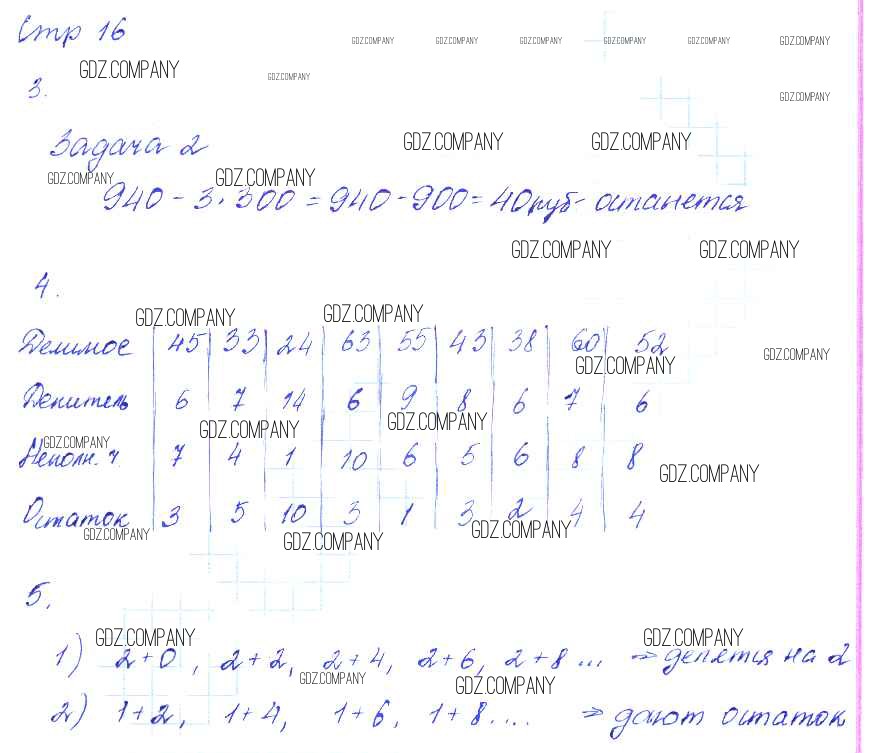 Стр 16
GDZ.COMPANY GDZ.COMPANY GDZ.COMPANY GDZ.COMPANY GDZ.COMPANY GDZ.COMPANY
GDZ.COMPANY GDZ.COMPANY
3.
GDZ.COMPANY
Задача 2
GDZ.COMPANY GDZ.COMPANY
GDZ.COMPANY GDZ.COMPANY
940 - 3 · 300 = 940 - 900 = 40 руб - останется
GDZ.COMPANY GDZ.COMPANY
4.
GDZ.COMPANY GDZ.COMPANY
Делимое 45 33 24 63 55 43 38 60 52
GDZ.COMPANY GDZ.COMPANY
Делитель 6 7 14 6 9 8 6 7 6
GDZ.COMPANY GDZ.COMPANY GDZ.COMPANY
Неполн. ч. 7 4 1 10 6 5 6 8 8
GDZ.COMPANY
Остаток 3 5 10 3 1 3 2 4 4
GDZ.COMPANY GDZ.COMPANY GDZ.COMPANY
5.
GDZ.COMPANY GDZ.COMPANY
1) 2+0, 2+2, 2+4, 2+6, 2+8 ... ⇒ делятся на 2
GDZ.COMPANY GDZ.COMPANY
2) 1+2, 1+4, 1+6, 1+8.... ⇒ дают остаток